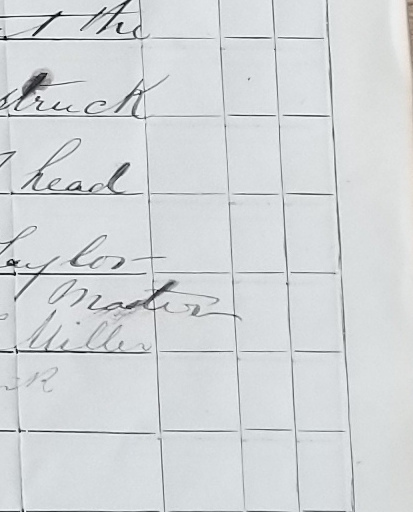 t the
struck
head
Taylor
Master
Miller